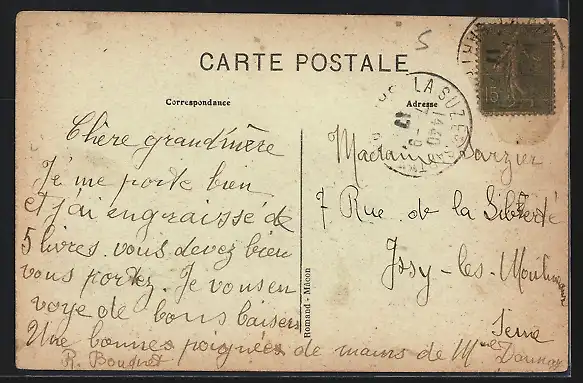 CARTE POSTALE
Correspondance
Adresse
LA SUZE
1440
15
Chère grand'mère
Je me porte bien
et j'ai engraissé de
5 livres. vous devez bien
vous portez. Je vous en
voye de bons baisers
Une bonnes poignées de mains de Mme
R. Bouquet
Madame Darzier
7 Rue de la Liberté
Issy-les-Moulineaux
Seine
Romand - Mâcon